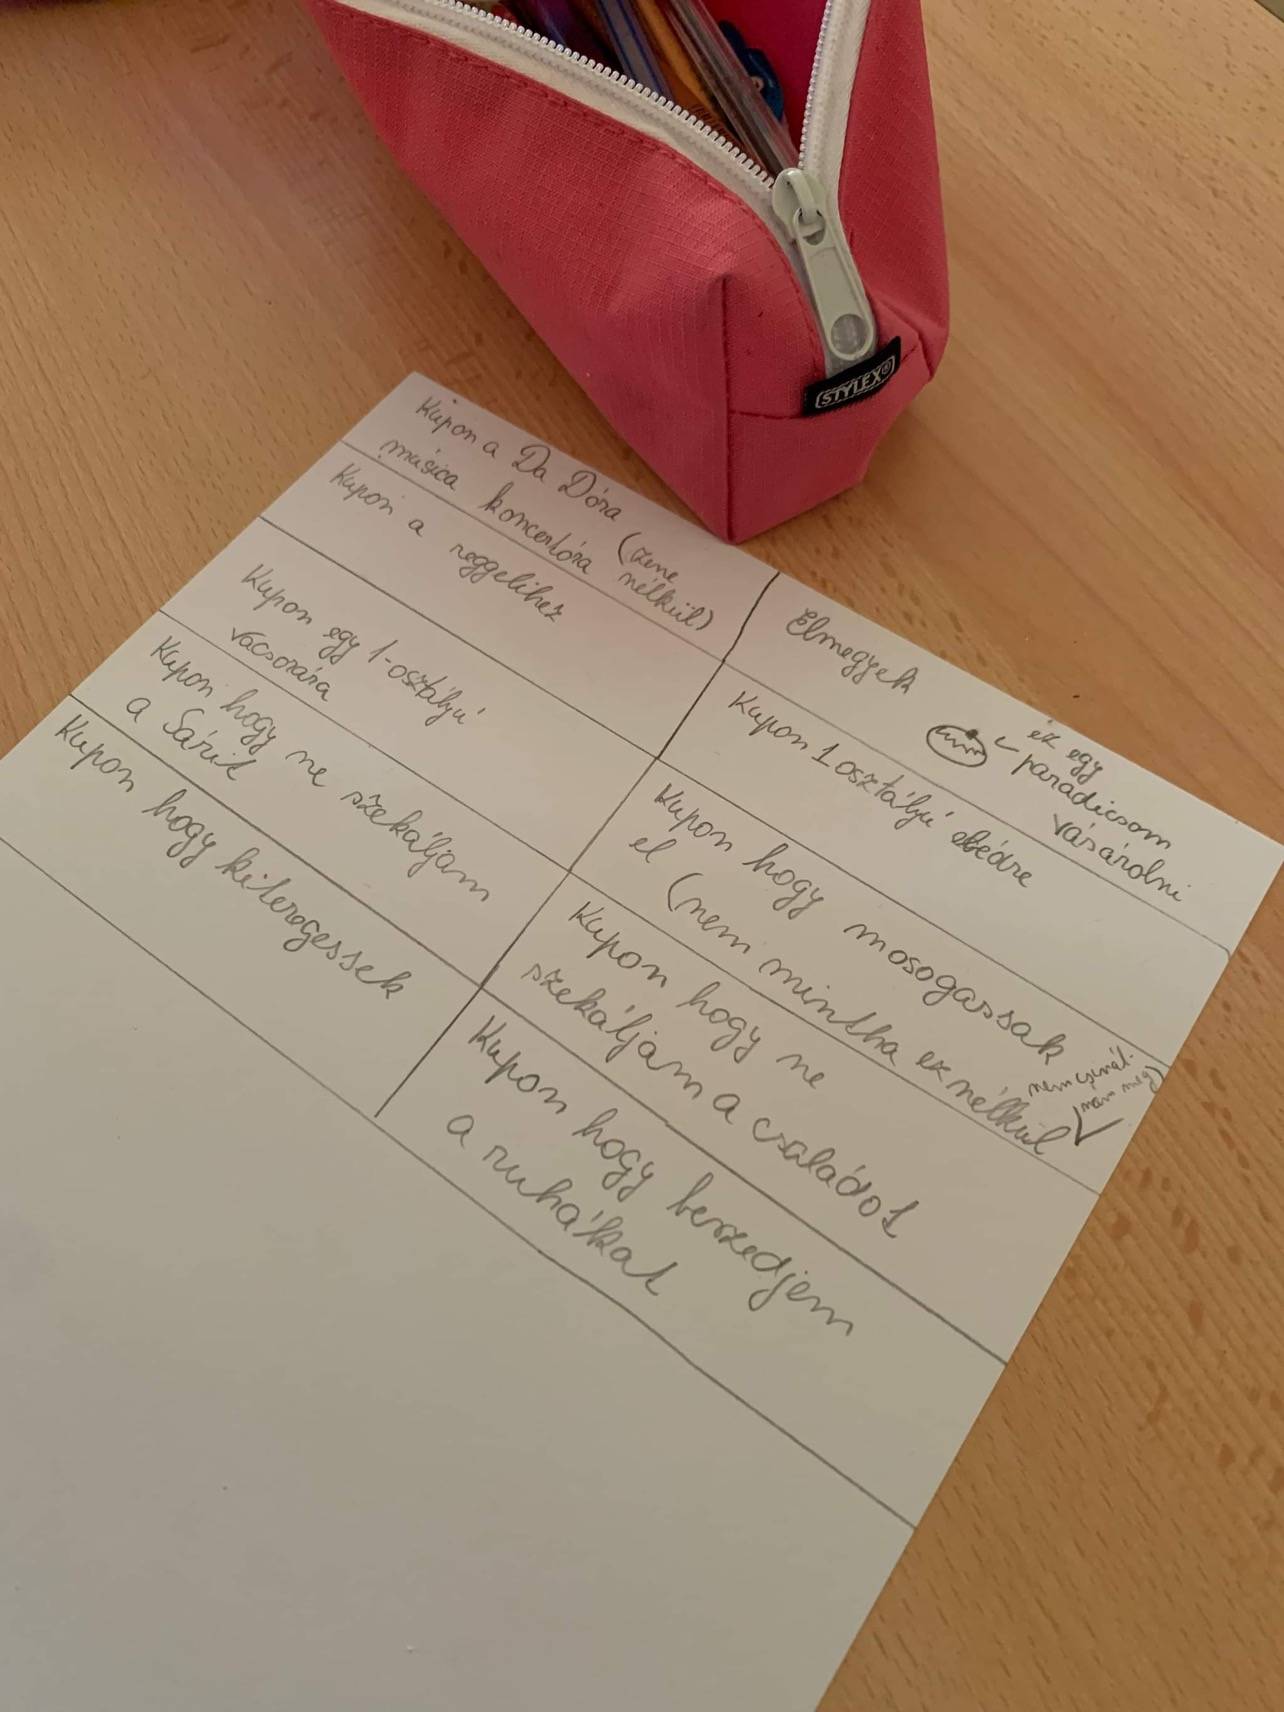 STYLEX®
Kupon a Da Dóra
musica koncertóra (zene
nélkül)
Elmegyek
← ez egy
paradicsom
vásárolni
Kupon a reggelihez
Kupon 1 osztályú ebédre
Kupon egy 1-osztályú
vacsorára
Kupon hogy mosogassak
el (nem mintha ez nélkül
nem csinál-
nám meg)
Kupon hogy ne szekáljam
a Sárit
Kupon hogy ne
szekáljam a családot
Kupon hogy kiteregessek
Kupon hogy beszedjem
a ruhákat